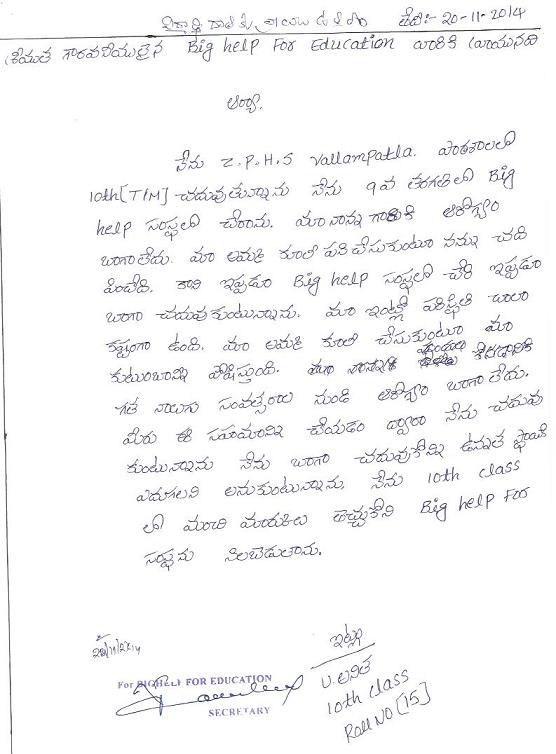 తేది:- 20-11-2014
గౌరవనీయులైన Big help For Education వారికి వ్రాయునది
ఆర్యా,
నేను Z.P.H.S Vallampatla. పాఠశాలలో
10th[T/M] చదువుతున్నాను నేను 9వ తరగతిలో Big
help సంస్థలో చేరాను. మా నాన్న గారికి ఆరోగ్యం
బాగాలేదు. మా అమ్మ కూలి పని చేసుకుంటూ నన్ను చది
పించేది. కాని ఇప్పుడు Big help సంస్థలో చేరి ఇప్పుడు
బాగా చదువుకుంటున్నాను. మా ఇంట్లో పరిస్థితి చాలా
కష్టంగా ఉంది. మా అమ్మ కూలి చేసుకుంటూ మా
కుటుంబాన్ని పోషిస్తుంది.
గత నాలుగు సంవత్సరాల నుండి ఆరోగ్యం బాగాలేదు.
మీరు ఈ సహాయాన్ని చేయడం ద్వారా నేను చదువు
కుంటున్నాను నేను బాగా చదువుకొన్ని ఉన్నత స్థాయికి
ఎదుగలని అనుకుంటున్నాను, నేను 10th class
లో మంచి మార్కులు తెచ్చుకొని Big help For
సంస్థను నిలబెడుతాను.
ఇట్లు
20/11/2014
U. అనిత
For BIGHELP FOR EDUCATION
10th class
SECRETARY
Roll NO [15]